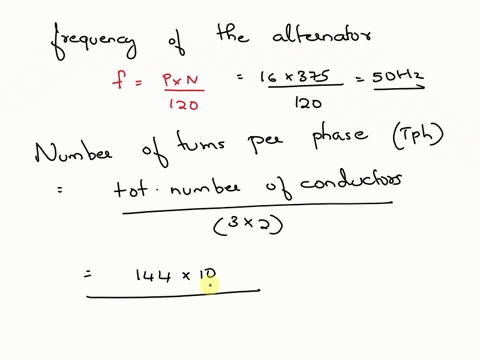 frequency of the alternator
f = P×N / 120 = 16×375 / 120 = 50Hz
Number of turns per phase (Tph)
= tot. number of conductors / (3×2)
= 144 × 10